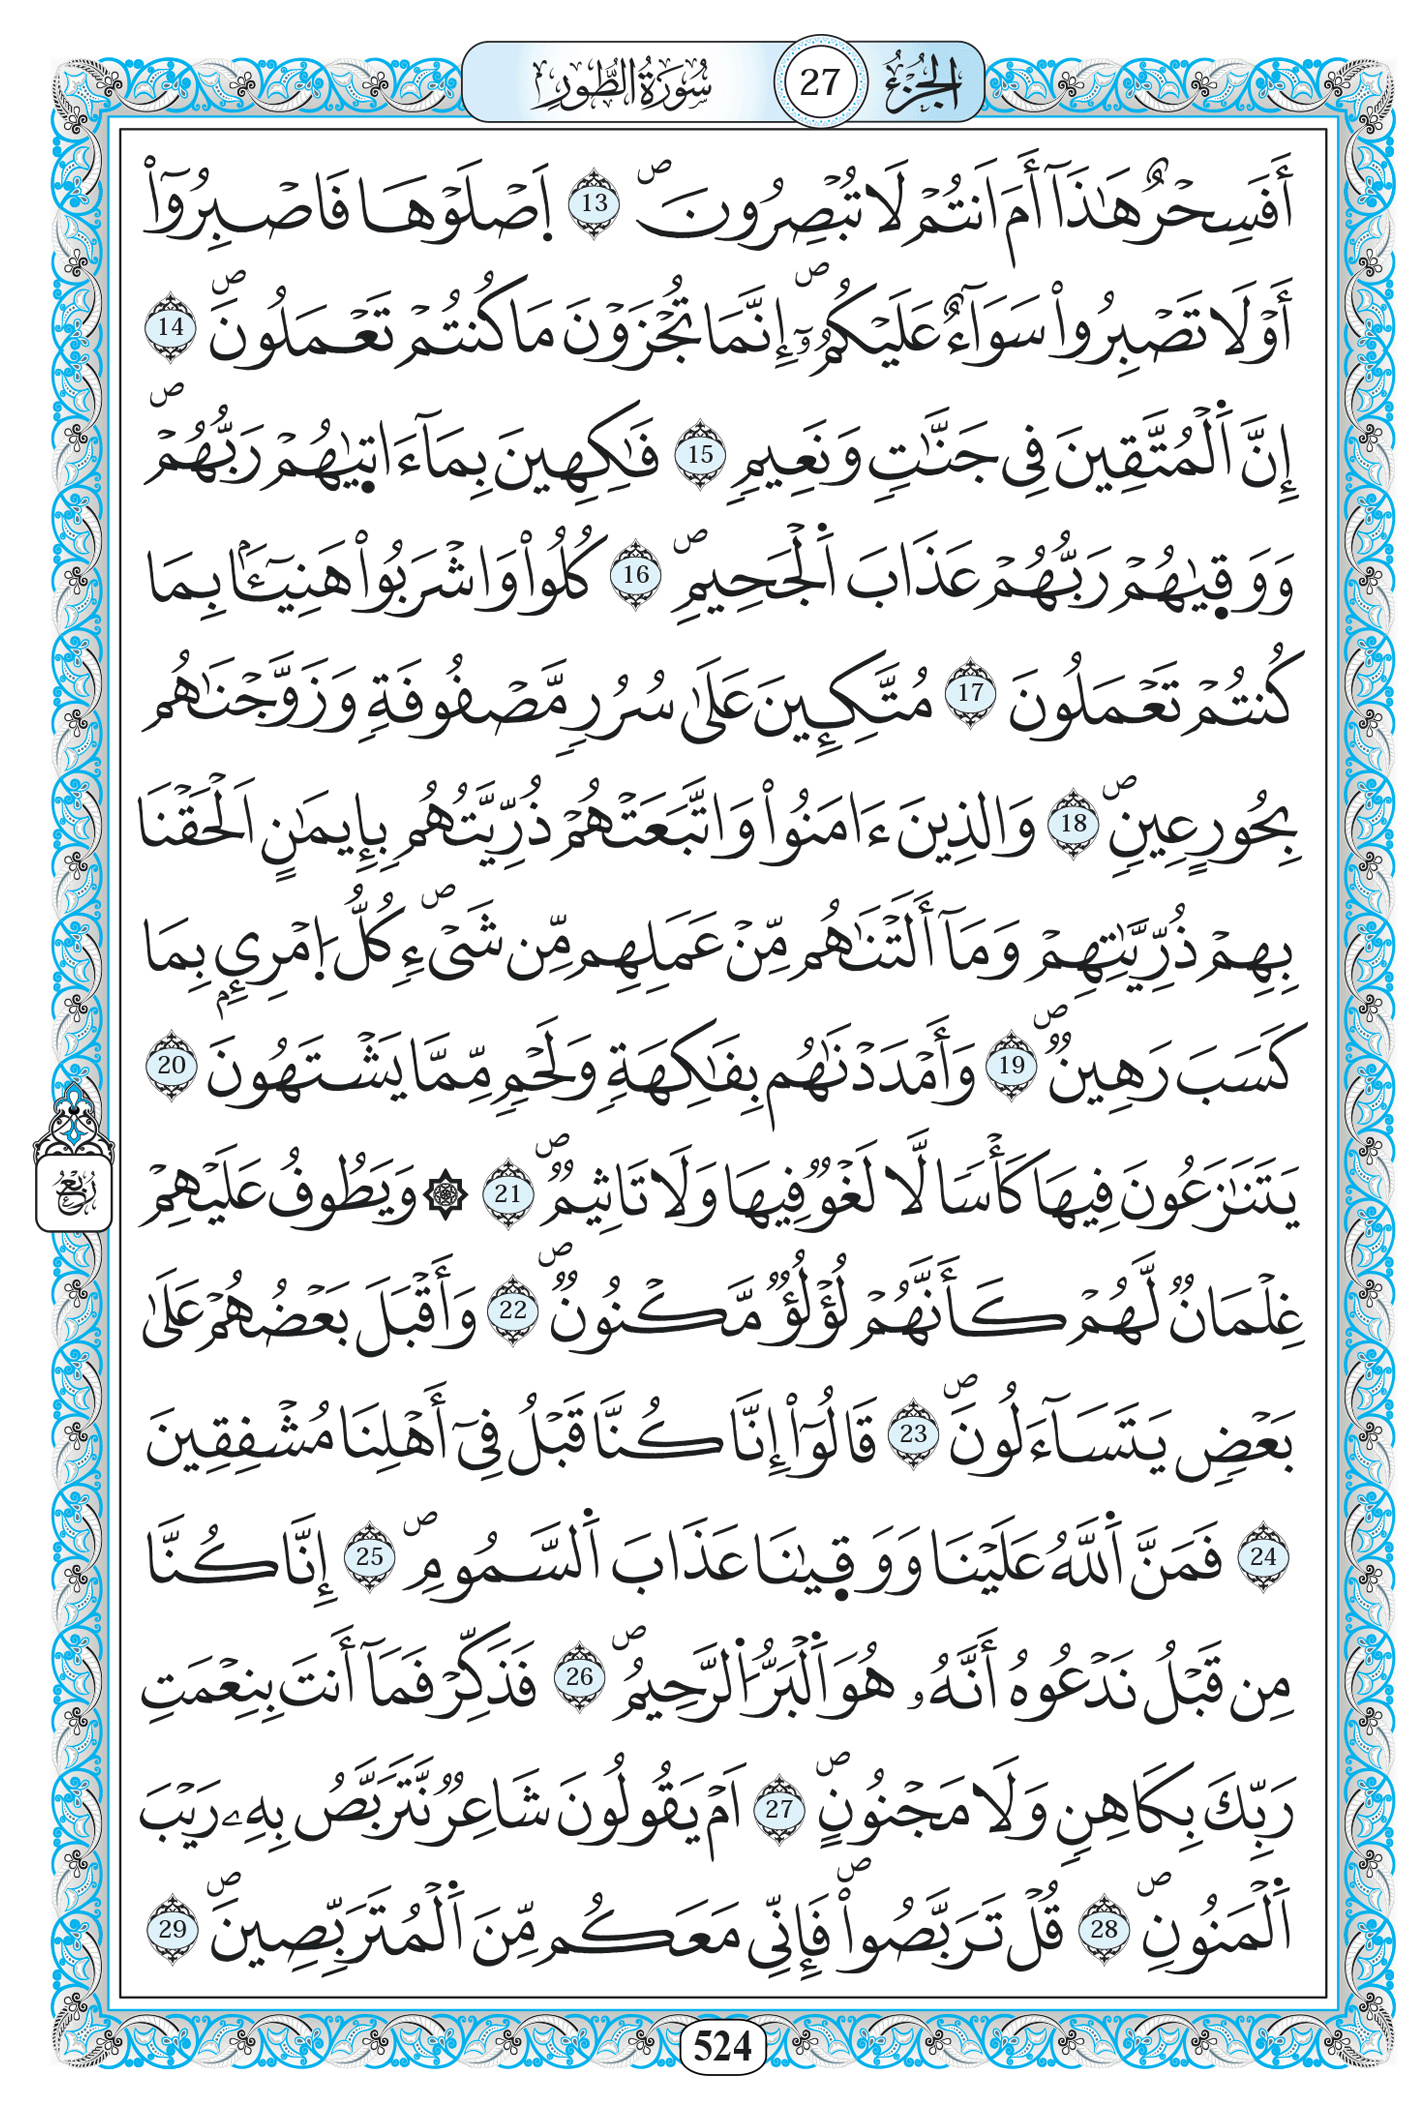 الجزء 27 سورة الطور
أَفَسِحْرٌ هَٰذَآ أَمَ اَنتُمْ لَا تُبْصِرُونَۖ 13 اَ۪صْلَوْهَا فَاصْبِرُوٓاْ
أَوْ لَا تَصْبِرُواْ سَوَآءٌ عَلَيْكُمُۥٓۖ إِنَّمَا تُجْزَوْنَ مَا كُنتُمْ تَعْمَلُونَۖ 14
إِنَّ اَ۬لْمُتَّقِينَ فِى جَنَّٰتٖ وَنَعِيمٖ 15 فَٰكِهِينَ بِمَآ ءَاتٜىٰهُمْ رَبُّهُمْۖ
وَوَقٜىٰهُمْ رَبُّهُمْ عَذَابَ اَ۬لْجَحِيمِۖ 16 كُلُواْ وَاشْرَبُواْ هَنِيٓـَٔۢا بِمَا
كُنتُمْ تَعْمَلُونَ 17 مُتَّكِـِٕينَ عَلَىٰ سُرُرٖ مَّصْفُوفَةٖ وَزَوَّجْنَٰهُم
بِحُورٍ عِينٖۖ 18 وَالذِينَ ءَامَنُواْ وَاتَّبَعَتْهُمْ ذُرِّيَّتُهُم بِإِيمَٰنٍ اَلْحَقْنَا
بِهِمْ ذُرِّيَّٰتِهِمْ وَمَآ أَلَتْنَٰهُم مِّنْ عَمَلِهِم مِّن شَىْءٖۖ كُلُّ اُ۪مْرِےِٕۢ بِمَا
كَسَبَ رَهِينٞۖ 19 وَأَمْدَدْنَٰهُم بِفَٰكِهَةٖ وَلَحْمٖ مِّمَّا يَشْتَهُونَ 20
يَتَنَٰزَعُونَ فِيهَا كَأْسٗا لَّا لَغْوٞ فِيهَا وَلَا تَاثِيمٞۖ 21 ۞ وَيَطُوفُ عَلَيْهِمْ
غِلْمَانٞ لَّهُمْ كَأَنَّهُمْ لُؤْلُؤٞ مَّكْنُونٞۖ 22 وَأَقْبَلَ بَعْضُهُمْ عَلَىٰ
بَعْضٖ يَتَسَآءَلُونَۖ 23 قَالُوٓاْ إِنَّا كُنَّا قَبْلُ فِىٓ أَهْلِنَا مُشْفِقِينَ
24 فَمَنَّ اَ۬للَّهُ عَلَيْنَا وَوَقٜىٰنَا عَذَابَ اَ۬لسَّمُومِۖ 25 إِنَّا كُنَّا
مِن قَبْلُ نَدْعُوهُ أَنَّهُۥ هُوَ اَ۬لْبَرُّ اُ۬لرَّحِيمُۖ 26 فَذَكِّرْ فَمَآ أَنتَ بِنِعْمَتِ
رَبِّكَ بِكَاهِنٖ وَلَا مَجْنُونٍۖ 27 اَمْ يَقُولُونَ شَاعِرٞ نَّتَرَبَّصُ بِهِۦ رَيْبَ
اَ۬لْمَنُونِۖ 28 قُلْ تَرَبَّصُواْۖ فَإِنِّى مَعَكُم مِّنَ اَ۬لْمُتَرَبِّصِينَۖ 29
ربع
524